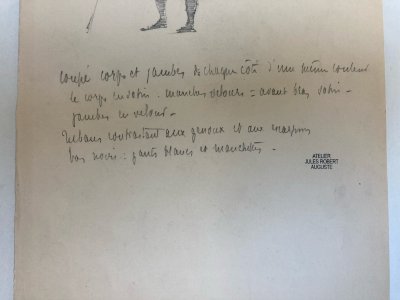 coupé corps et jambes de chaque côté d'une même couleur
le corps en satin : manches velours = avant bras satin -
jambes en velours -
Rubans contrastant aux genoux et aux
bas noirs : gants blancs et manchettes -
ATELIER
JULES ROBERT
AUGUSTE